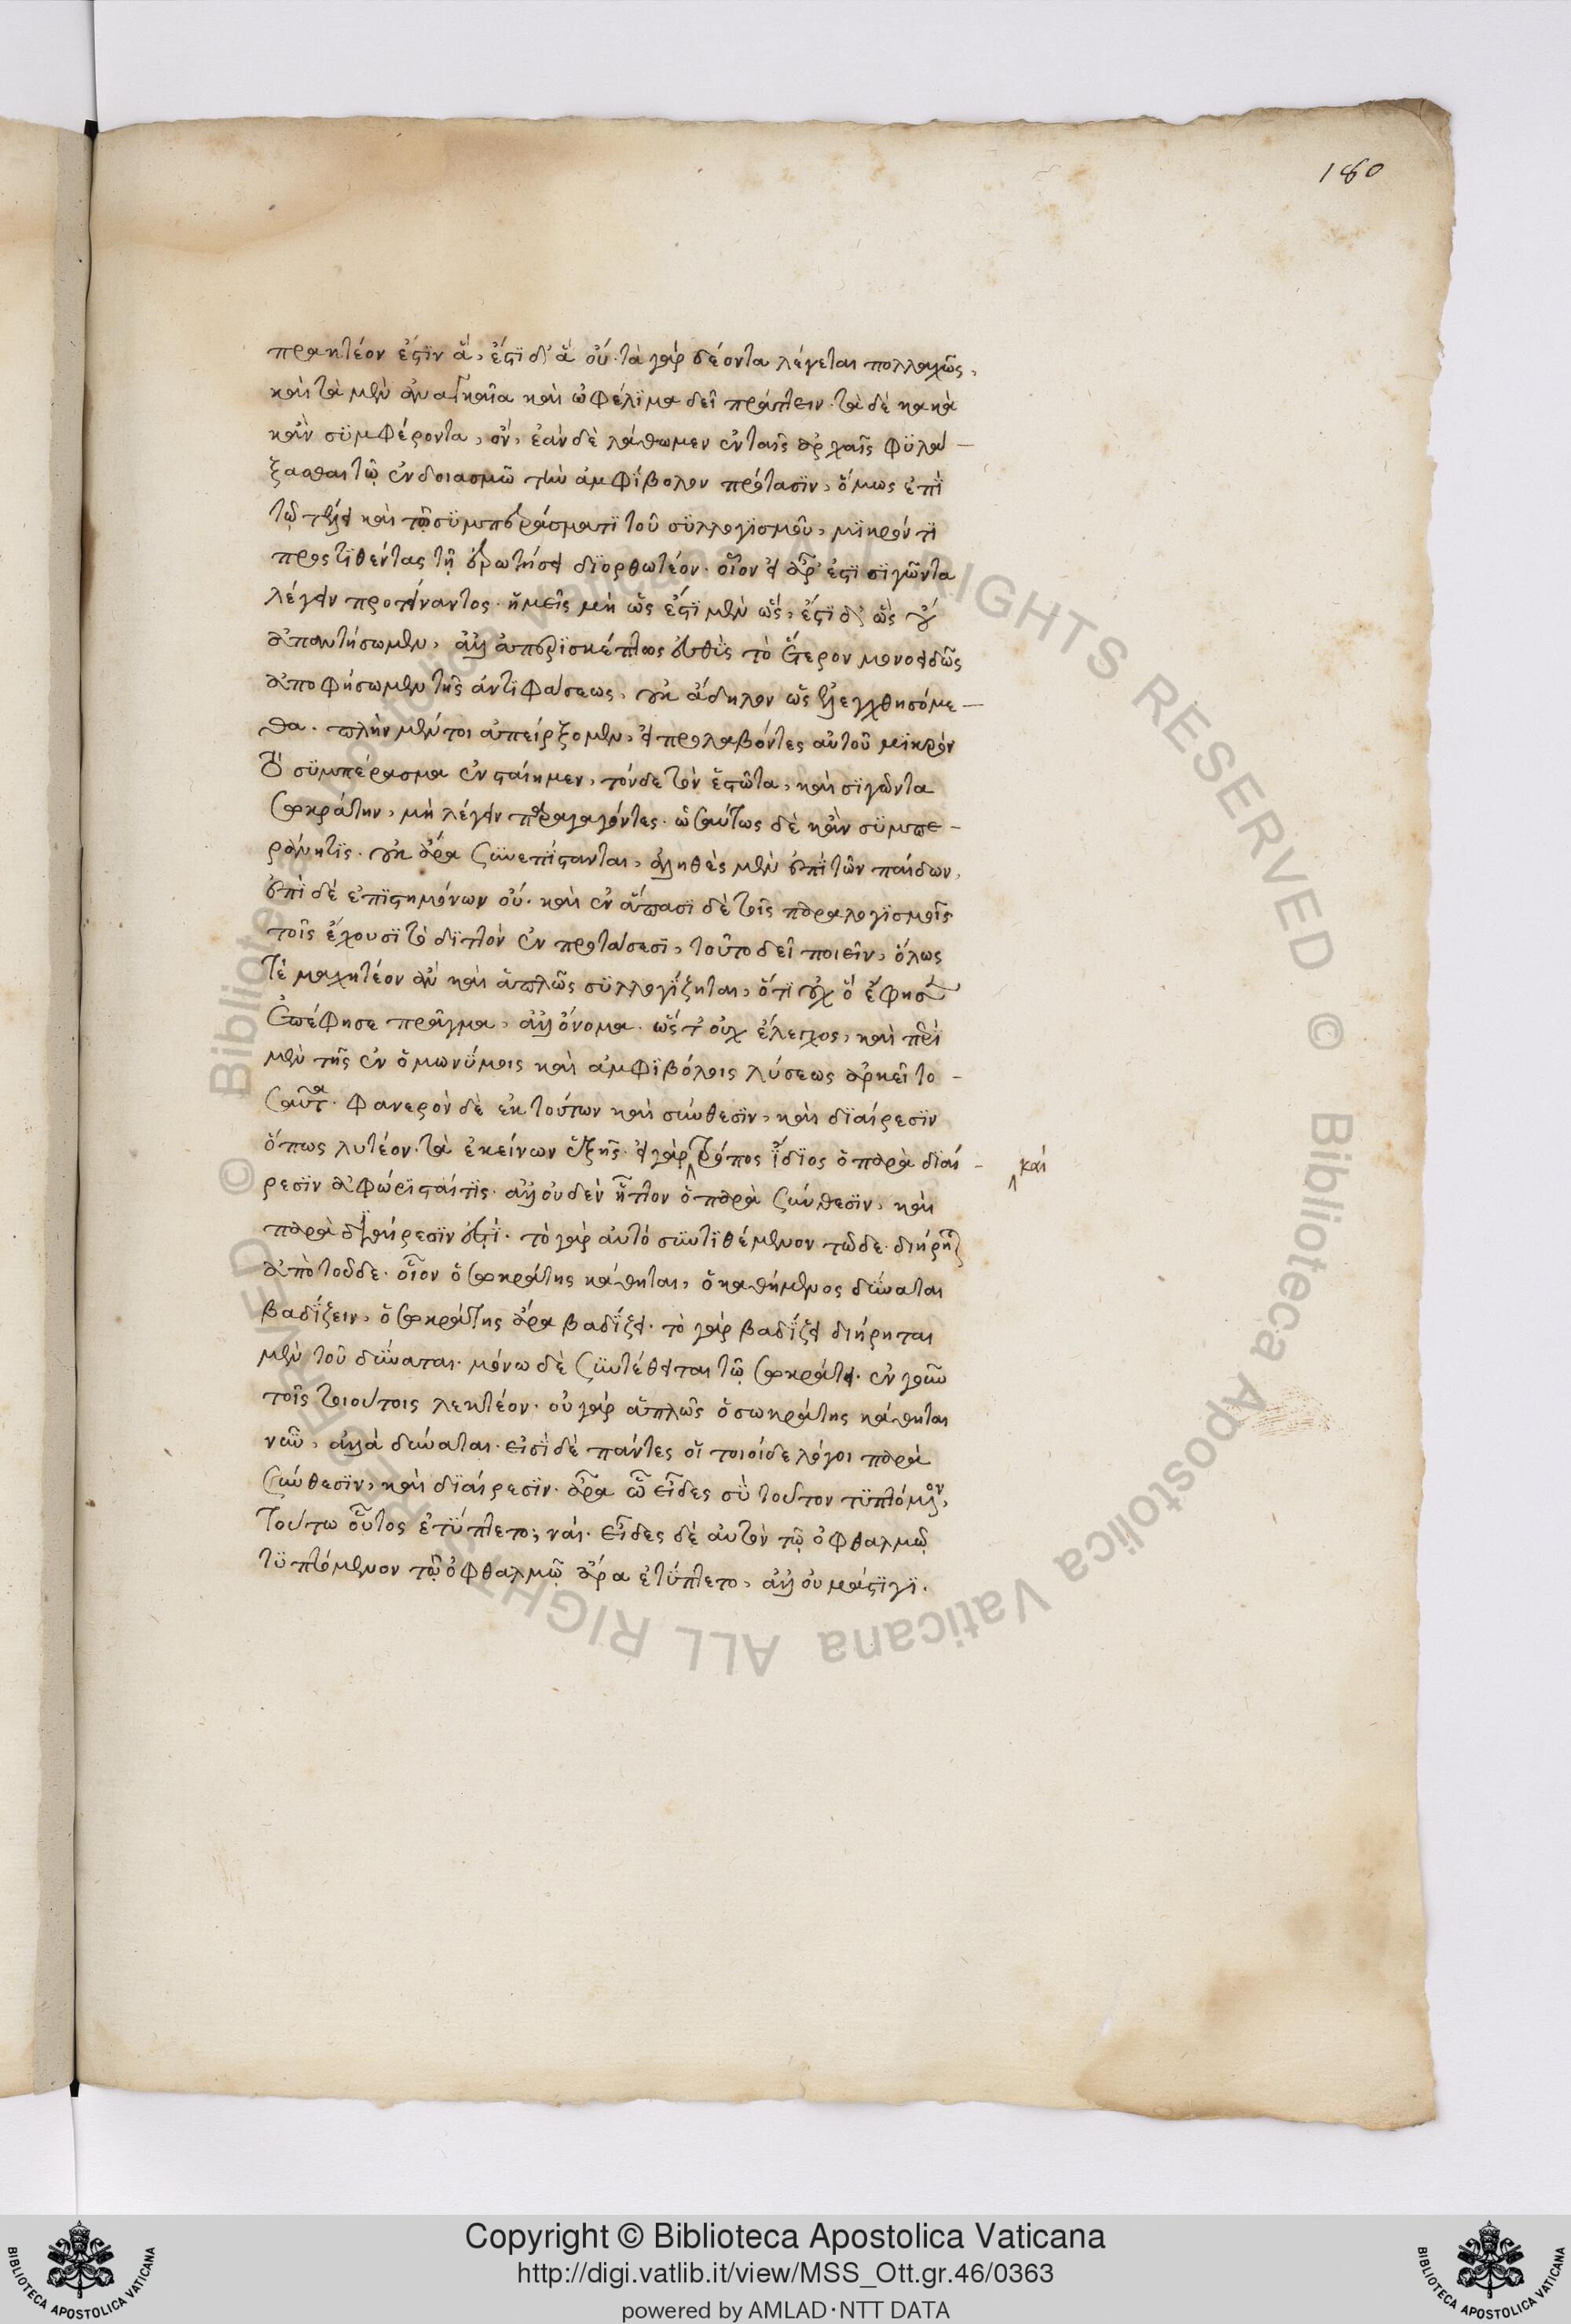 180
πρακτέον ἐστὶν ἅ, ἔστι δ' ἃ οὔ. τὰ γὰρ δέοντα λέγεται πολλαχῶς,
καὶ τὰ μὲν ἀναγκαῖα καὶ ὠφέλιμα δεῖ πράττειν. τὰ δὲ κακὰ
κἂν συμφέροντα, οὔ. ἐὰν δὲ λάθωμεν ἐν ταῖς ἀρχαῖς φυλά-
ξασθαι τῷ ἐνδοιασμῷ τὴν ἀμφίβολον πρότασιν, ὅμως ἐπὶ
τῷ τέλει καὶ τῷ συμπεράσματι τοῦ συλλογισμοῦ, μικρόν τι
προστιθέντας τῇ ἐρωτήσει διορθωτέον. οἷον εἰ ἆρ' ἔστι σιγῶντα
λέγειν προτείναντος. ἡμεῖς μὴ ὡς ἔστι μὲν ὥς, ἔστι δ' ὡς οὔ
ἀπαντήσωμεν, ἀλλ' ἀπερισκέπτως εὐθὺς τὸ ἕτερον μονοειδῶς
ἀποφήσωμεν τῆς ἀντιφάσεως, οὐκ ἄδηλον ὡς ἐλεγχθησόμε-
θα. πλὴν μέντοι ἀπείρξομεν, εἰ προλαβόντες αὐτοῦ μικρὸν
τὸ συμπέρασμα ἐνσταίημεν, τόνδε τὸν ἑστῶτα, καὶ σιγῶντα
σωκράτην, μὴ λέγειν παραγαγόντες. ὡσαύτως δὲ κἂν συμπε-
ράνῃ τις. οὐκ ἄρα συνεπίστανται, ἀληθὲς μὲν ἐπὶ τῶν παίδων,
ἐπὶ δὲ ἐπιστημόνων οὔ. καὶ ἐν ἅπασι δὲ τοῖς παραλογισμοῖς
τοῖς ἔχουσι τὸ διττὸν ἐν προτάσεσι, τοῦτο δεῖ ποιεῖν, ὅλως
τὲ μαχητέον ἂν καὶ ἁπλῶς συλλογίζηται, ὅτι οὐχ ὃ ἔφησεν
ἀπέφησε πρᾶγμα, ἀλλ' ὄνομα. ὥστ' οὐχ ἔλεγχος, καὶ περὶ
μὲν τῆς ἐν ὁμωνύμοις καὶ ἀμφιβόλοις λύσεως ἀρκεῖ το-
σαῦτα. φανερὸν δὲ ἐκ τούτων καὶ σύνθεσιν, καὶ διαίρεσιν
ὅπως λυτέον. τὰ ἐκείνων ἑξῆς. εἰ γὰρ τρόπος ἴδιος ὁ παρὰ διαί-
καὶ
ρεσιν ἀφώρισταί τις. ἀλλ' οὐδὲν ἧττον ὁ παρὰ σύνθεσιν, καὶ
παρὰ διαίρεσιν ἐστί. τὸ γὰρ αὐτὸ συντιθέμενον τῷδε. διῄρηται
ἀπὸ τοῦδε. οἷον ὁ σωκράτης κάθηται, ὁ καθήμενος δύναται
βαδίζειν, ὁ σωκράτης ἄρα βαδίζει. τὸ γὰρ βαδίζει διῄρηται
μὲν τοῦ δύναται. μόνω δὲ συντέθειται τῷ σωκράτει. ἐν γοῦν
τοῖς τοιούτοις λεκτέον. οὐ γὰρ ἁπλῶς ὁ σωκράτης κάθηται
νῦν, ἀλλὰ δύναται. εἰσὶ δὲ πάντες οἱ τοιοίδε λόγοι παρὰ
σύνθεσιν, καὶ διαίρεσιν. ἆρα ᾧ εἶδες σὺ τοῦτον τυπτόμενον,
τούτω οὗτος ἐτύπτετο; ναί. εἶδες δὲ αὐτὸν τῷ ὀφθαλμῷ
τυπτόμενον τῷ ὀφθαλμῷ ἄρα ἐτύπτετο, ἀλλ' οὐ μάστιγι.
Copyright © Biblioteca Apostolica Vaticana
http://digi.vatlib.it/view/MSS_Ott.gr.46/0363
powered by AMLAD·NTT DATA